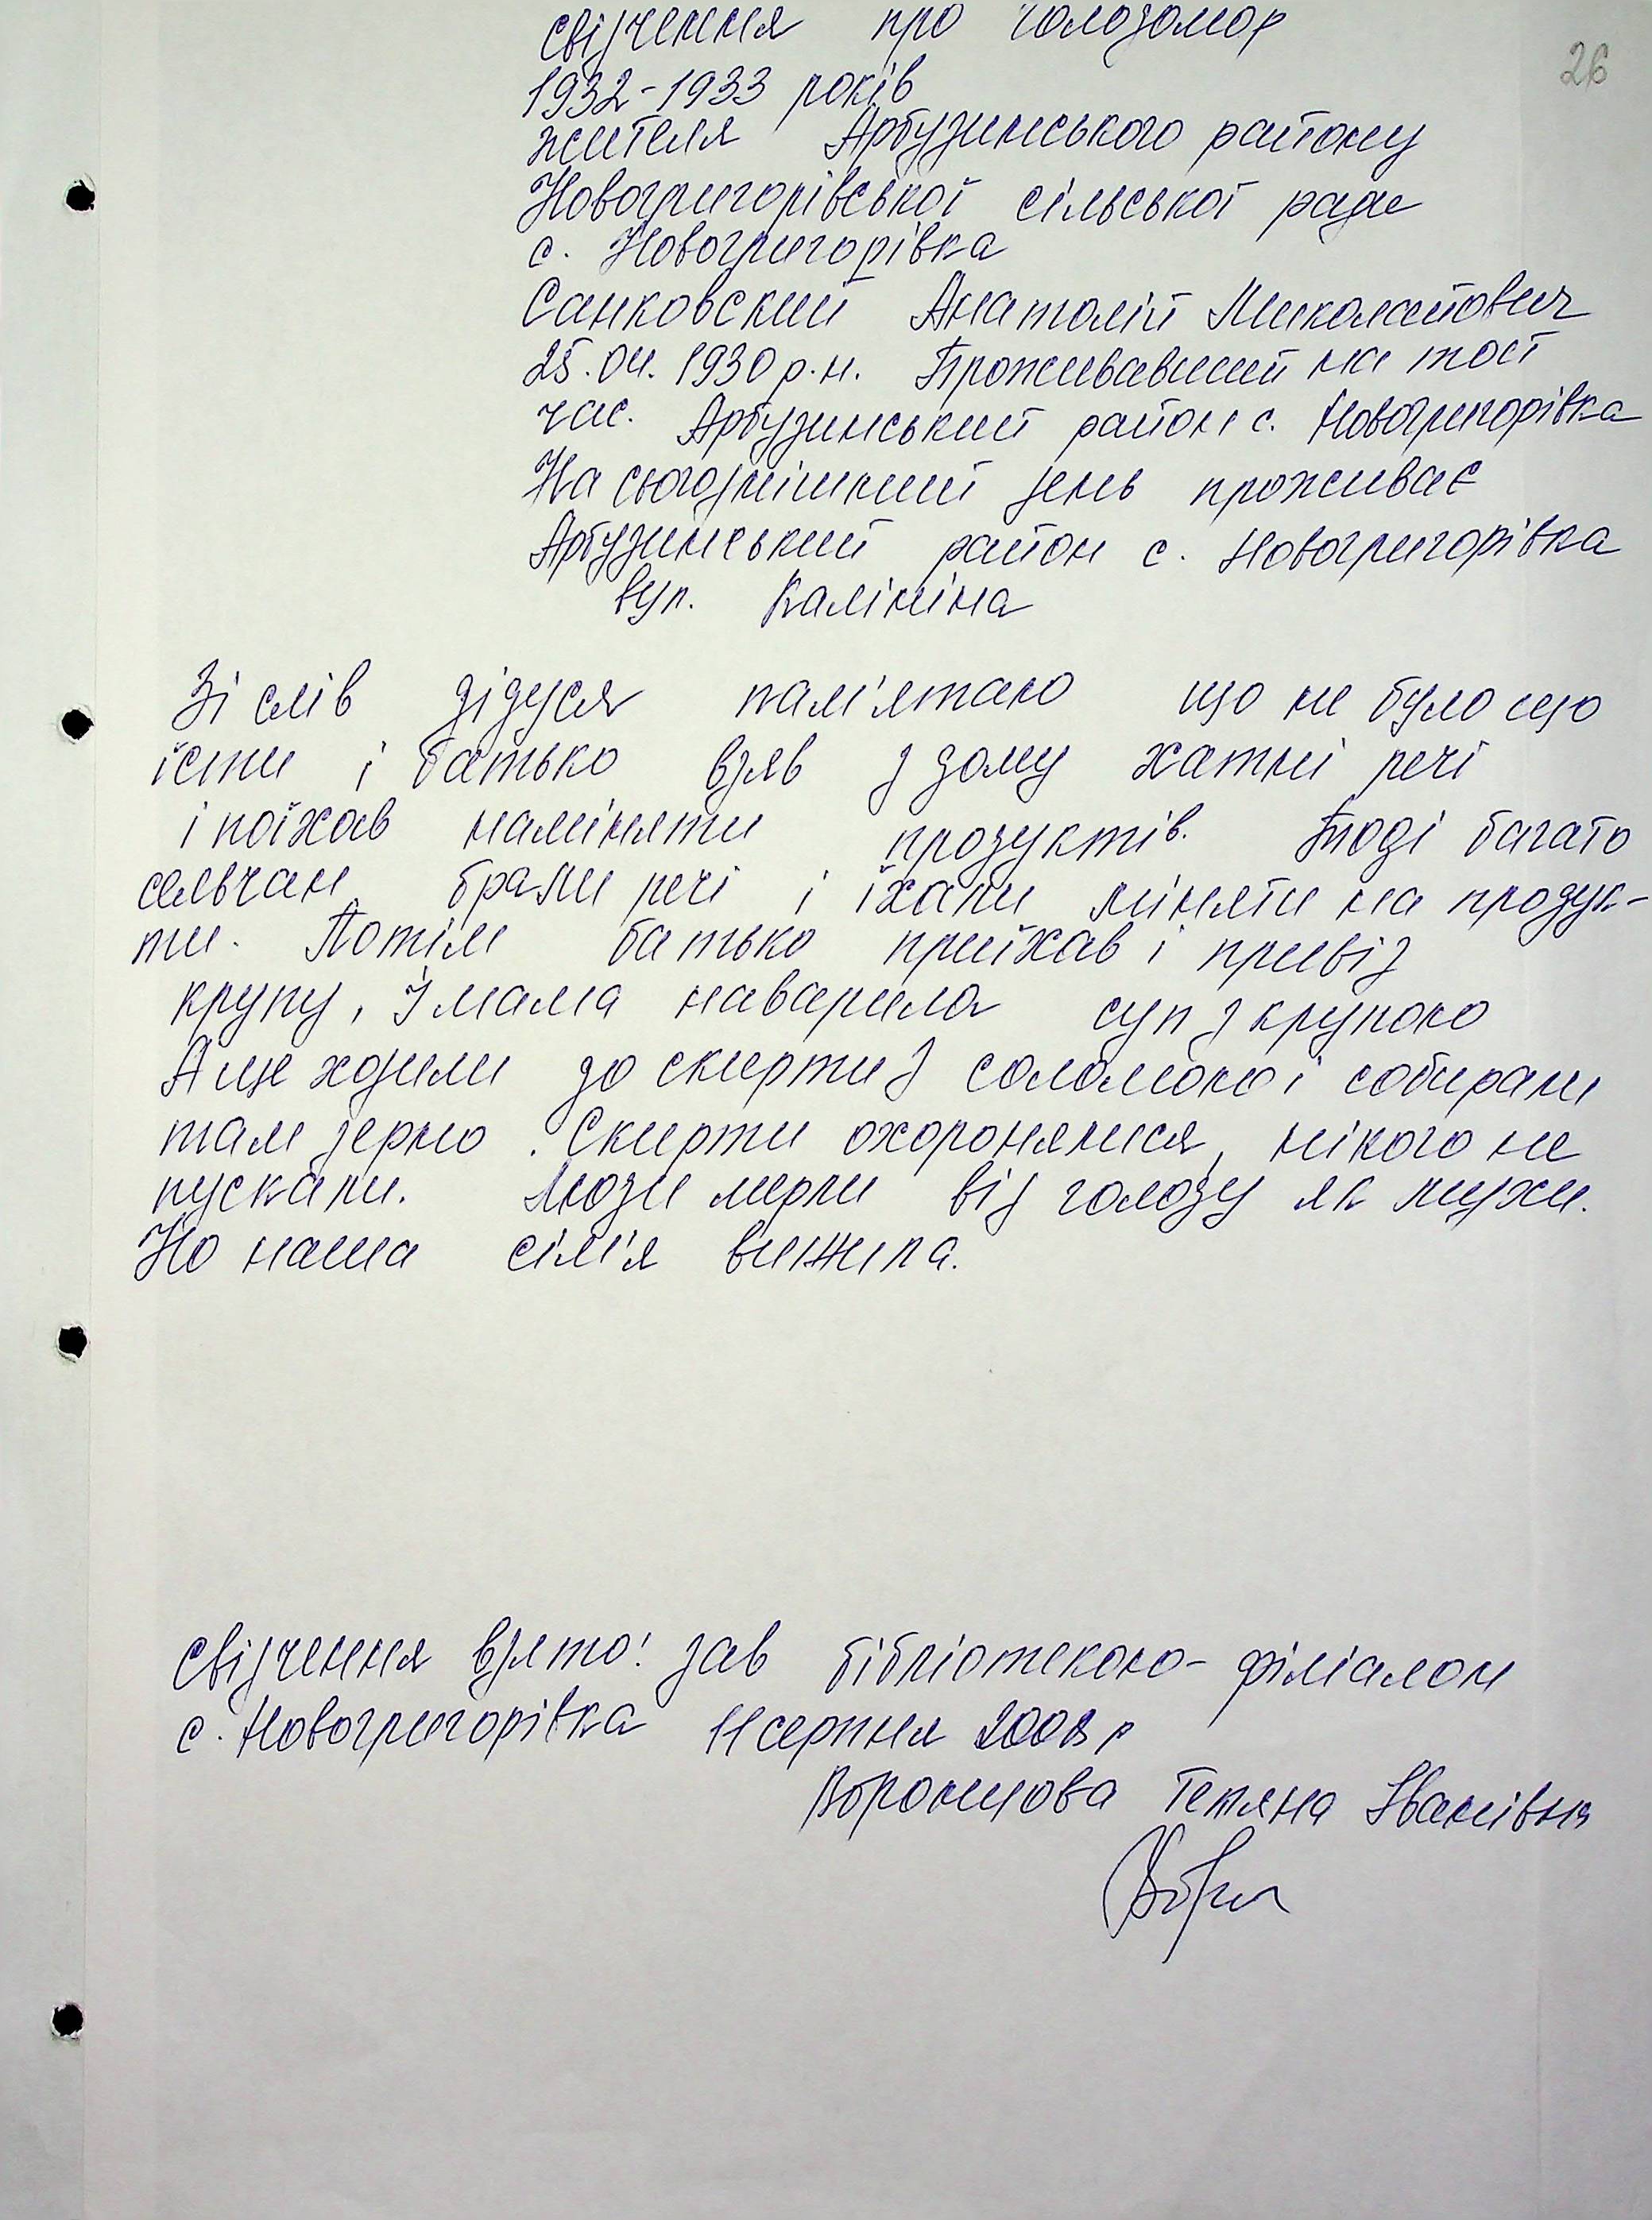 26
свідчення про голодомор
1932-1933 років
жителя Арбузинського району
Новогригорівської сільської ради
с. Новогригорівка
Санковский Анатолій Миколайович
25.04.1930 р.н. Проживавший на той
час. Арбузинський район с. Новогригорівка
На сьогоднішний день проживає
Арбузинський район с. Новогригорівка
вул. Калініна
Зі слів дідуся пам'ятаю що не було що
їсти і батько взяв з дому хатні речі
і поїхав наміняти продуктів. Тоді багато
сельчан брали речі і їхали міняти на продук-
ти. Потім батько приїхав і привіз
крупу, і мама наварила суп з крупою
А ще ходили до скирти з соломою і собирали
там зерно. Скирти охоронялися, нікого не
пускали. Люди мерли від голоду як мухи.
Но наша сім'я вижила.
Свідчення взято: зав бібліотекою-філіалом
с. Новогригорівка 11 серпня 2008 р
Воронцова Тетяна Іванівна